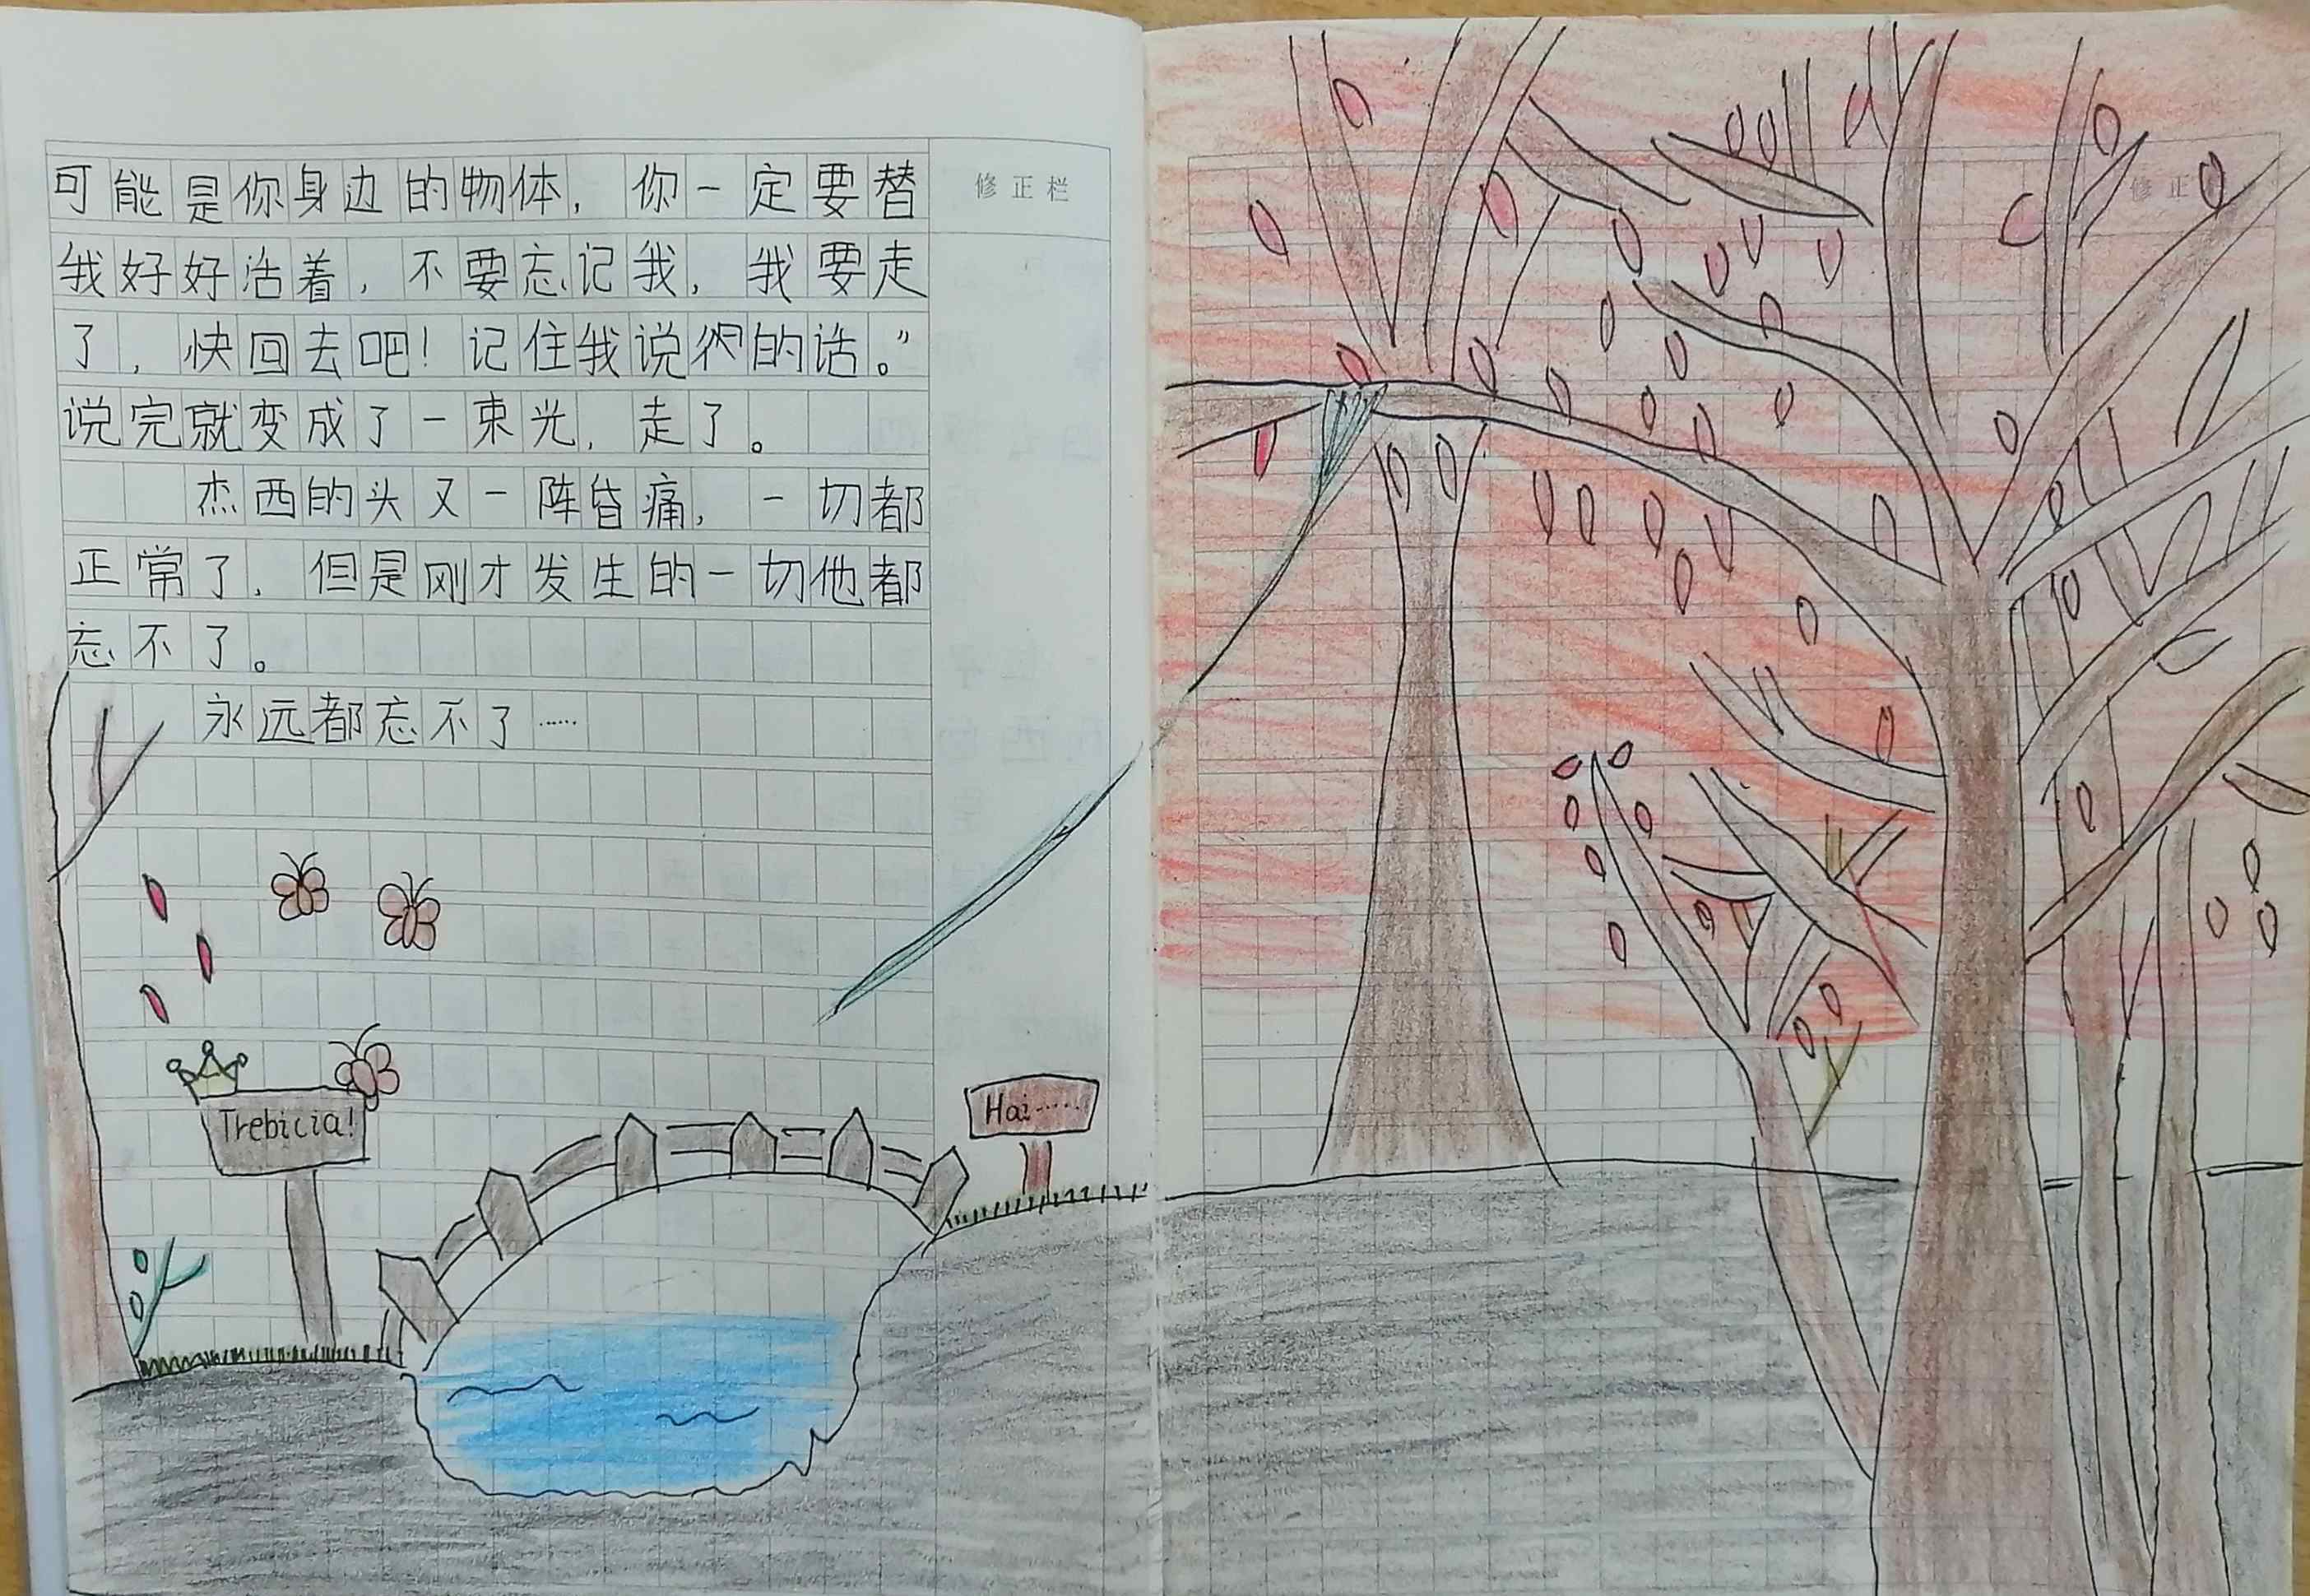 可能是你身边的物体，你一定要替
修正栏
我好好活着，不要忘记我，我要走
了，快回去吧！记住我说的话。”
说完就变成了一束光，走了。
杰西的头又一阵昏痛，一切都
正常了，但是刚才发生的一切他都
忘不了。
永远都忘不了……
Trebicia!
Hai……
修正